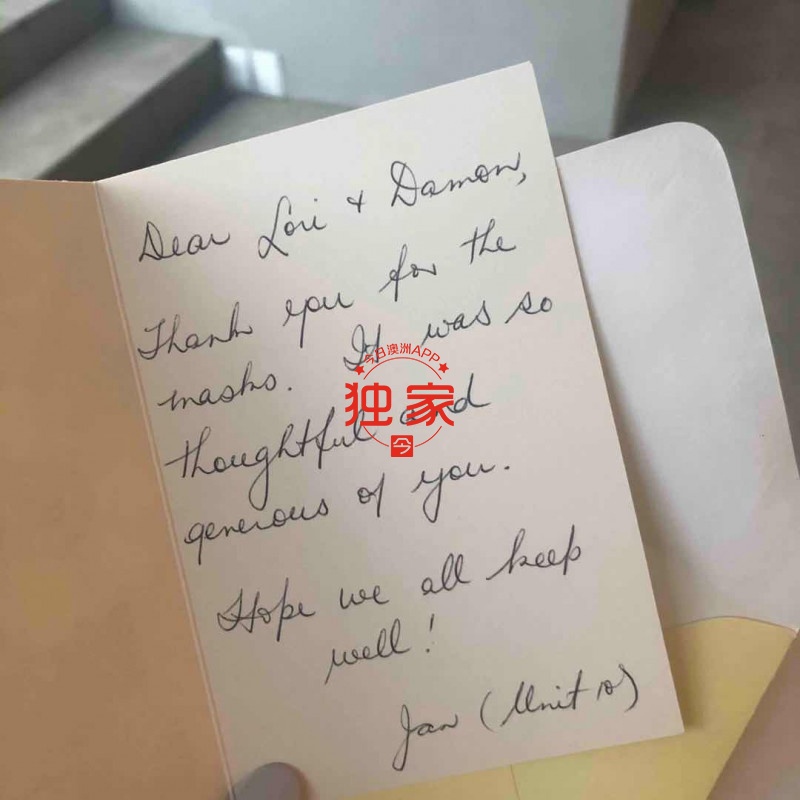 Dear Lori & Damon,
Thank you for the
masks. It was so
thoughtful and
generous of you.
Hope we all keep
well!
Jan (Unit 10)
今日澳洲APP
独家
今